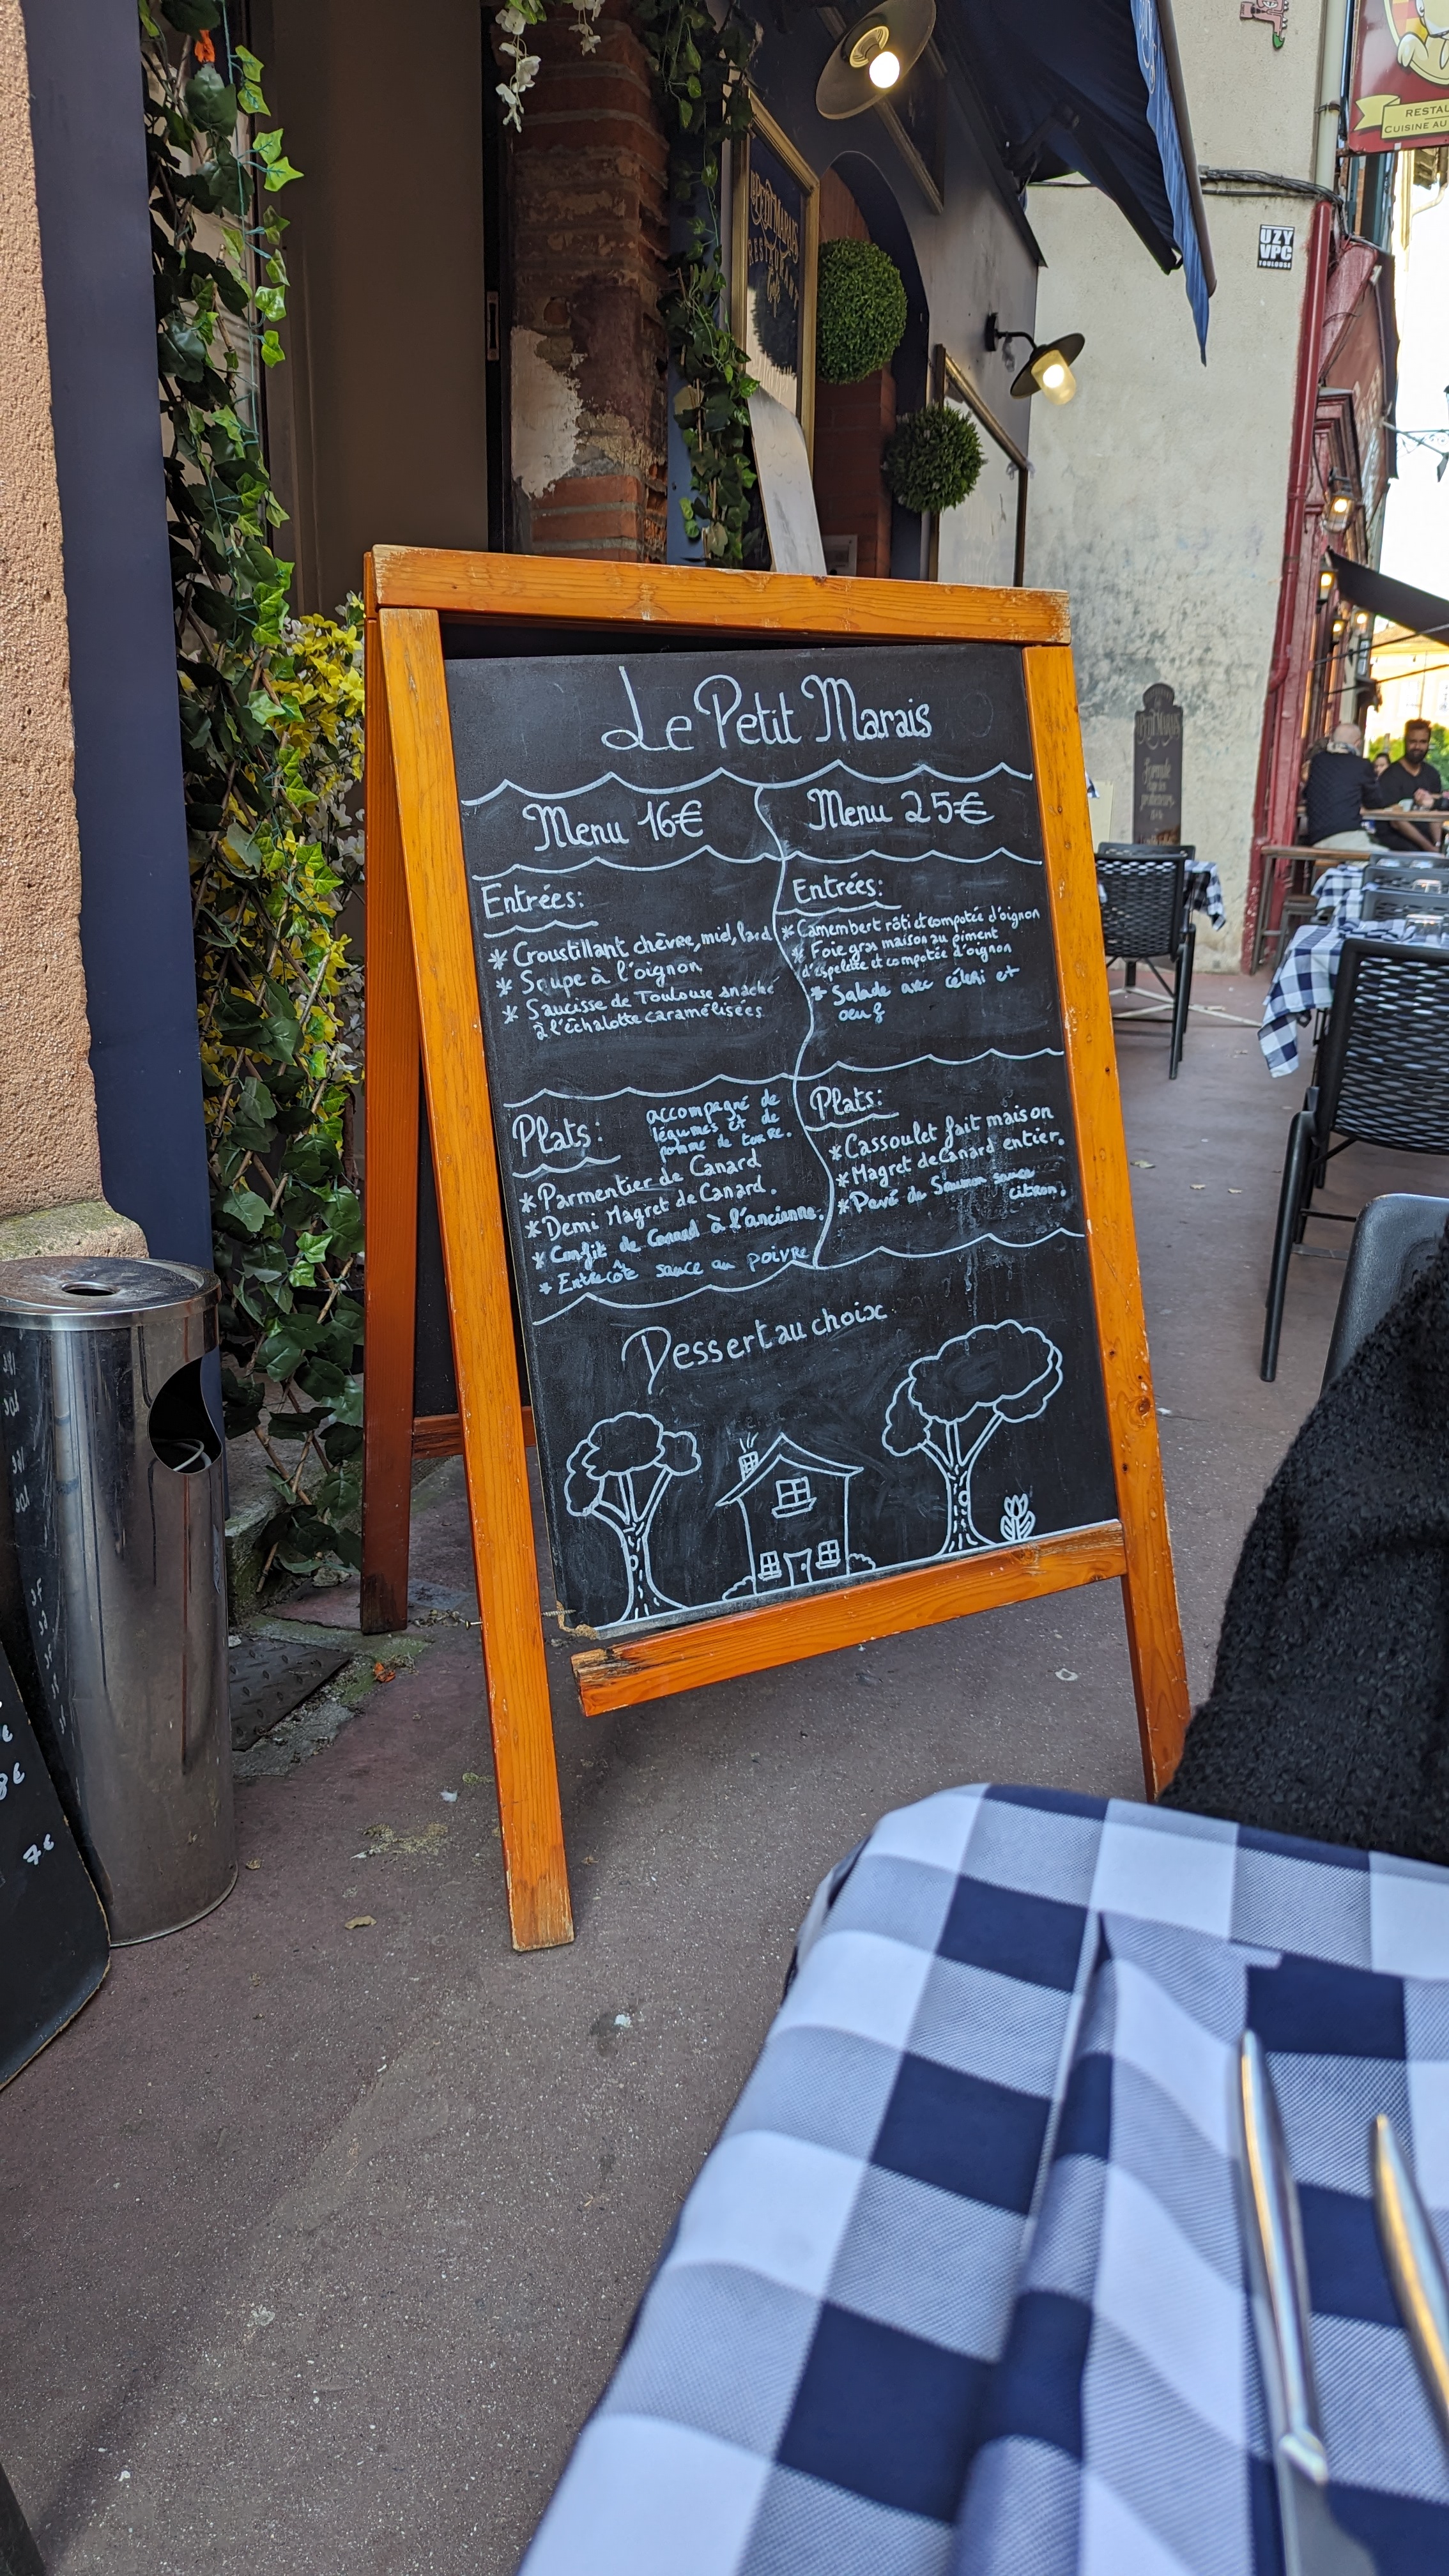 Le Petit Marais
Menu 16€
Entrées:
* Croustillant chèvre, miel, lard
* Soupe à l'oignon
* Saucisse de Toulouse snacké
à l'échalotte caramélisées
Plats:
accompagné de
légumes et de
pomme de terre.
* Parmentier de Canard
* Demi Magret de Canard.
* Confit de Canard à l'ancienne.
* Entrecôte sauce au poivre
Menu 25€
Entrées:
* Camembert rôti et compotée d'oignon
* Foie gras maison au piment
d'espelette et compotée d'oignon
* Salade avec céleri et
oeuf
Plats:
* Cassoulet fait maison
* Magret de Canard entier.
* Pavé de Saumon sauce
citron.
Dessert au choix
PETIT MARAIS
RESTAURANT
UZY
VPC
TOULOUSE
RESTAU
CUISINE AU
8€
7€